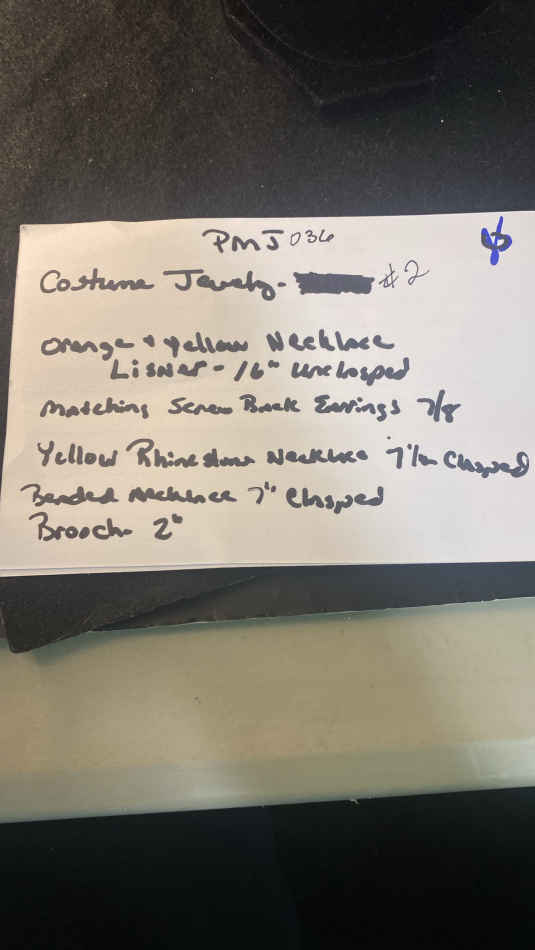 PMJ 036
Costume Jewelry - #2
Orange & Yellow Necklace
Lisner - 16" Unclasped
Matching Screw Back Earrings 7/8
Yellow Rhinestone Necklace Clasped
Beaded Necklace 7" Clasped
Brooch 2"